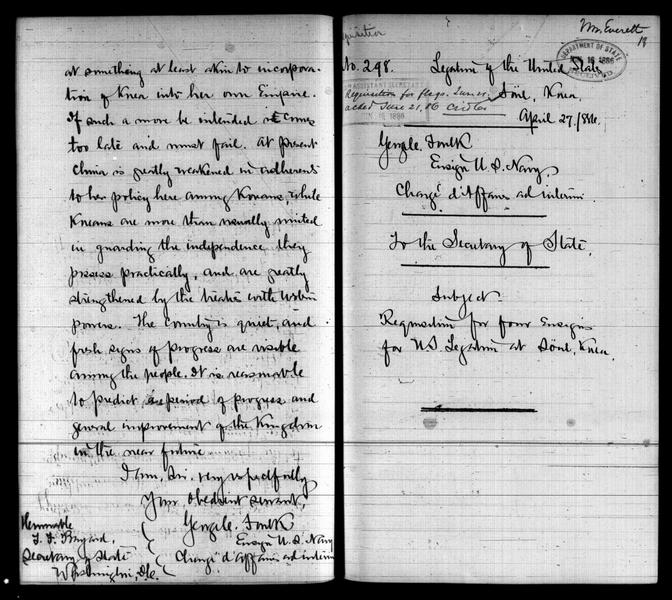 at something at least akin to incorpora-
tion of Korea into her own Empire.
If such a move be intended it comes
too late and must fail. At present
China is greatly weakened in adherents
to her policy here among Koreans, while
Koreans are more than usually united
in guarding the independence they
possess practically, and are greatly
strengthened by the treaties with Western
powers. The Country is quiet, and
fresh signs of progress are visible
among the people. It is reasonable
to predict a period of progress and
general improvement of the Kingdom
in the near future.
I am, Sir, very respectfully
Your obedient servant,
George C. Foulk
Ensign U.S. Navy
Chargé d'Affaires ad interim
Honorable
T. F. Bayard,
Secretary of State
Washington, D.C.
Wm Everett
18
DEPARTMENT OF STATE
1886
RECEIVED
No. 298.
Legation of the United States
Söul, Korea,
April 27/1886.
Requisition for flags.
ASSISTANT SECRETARY
1886
George C. Foulk
Ensign U.S. Navy,
Chargé d'Affaires ad interim
To the Secretary of State,
Subject.
Requisition for four Ensigns
for US Legation at Söul, Korea.